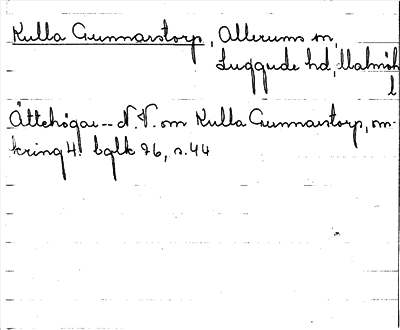 Kulla Gunnarstorp, Allerums sn,
Luggude hd, Malmöh
l
Ättehögar -- N.V. om Kulla Gunnarstorp, om-
kring 4. bglk 26, s. 44